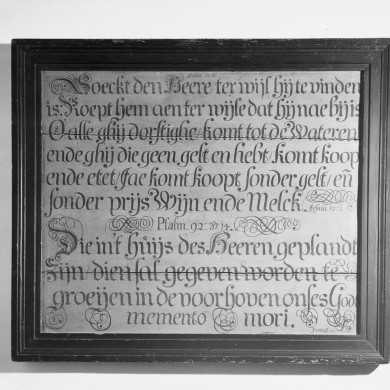 Soeckt den Heere ter wijl hij te vinden
is: Roept hem aen ter wijle dat hij nae bij is
O alle ghij dorstighe/ komt tot de Wateren
ende ghij die geen gelt en hebt/ komt koop
ende etet/ Jae komt koopt sonder gelt/ eñ
sonder prijs Wijn ende Melck.
Psalm. 92: v. 14.
Die int huijs des Heeren geplandt
zijn/ dien sal gegeven worden te
groeijen in de voorhoven onses Gods
memento mori.